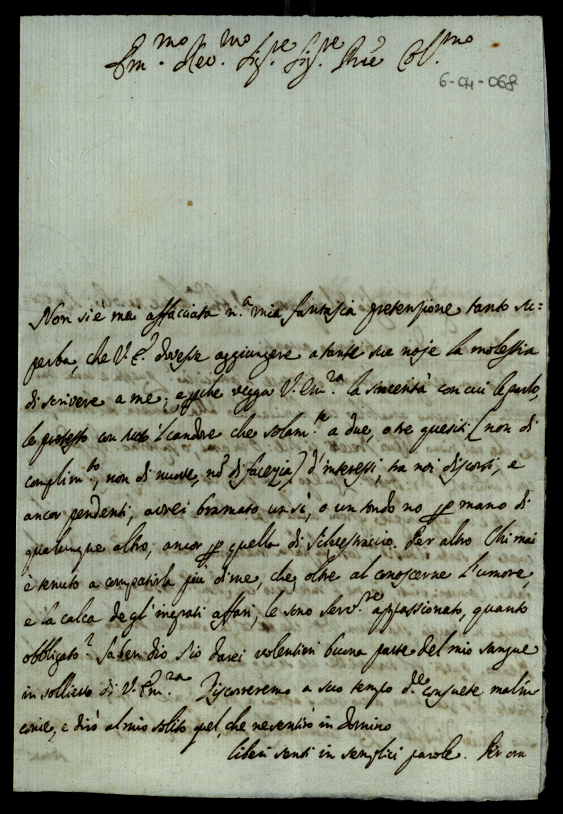 Em.mo Rev.mo Sig.re Sig.re P̃ne Col.mo
6-04-068
Non si è mai affacciata n.a mia fantasia pretenzione tanto su=
perba, che V. E. dovesse aggiungere a tante sue noje la molestia
di scrivere a me; e pche vegga V. Em.za la sincerità con cui le parlo,
le protesto con tutto 'l candore che solam.te a due, o tre quesiti (non di
complim.to, non di nuove, nõ di facezia) d'interessi, tra noi discorsi, e
ancor pendenti, avrei bramato un sì, o un tondo no p mano di
qualunque altro, ancor p quella di Schiestraccio. Per altro Chi mai
è tenuto a compatirla più di me, che, oltre al conoscerne l'umore,
e la calca degl'ingrati affari, le sono Serv.re appassionato, quanto
obbligato? Sa ben dio s'io darei volentieri buona parte del mio sangue
in sollievo di V. Em.za Discorreremo a suo tempo d.e consuete malin
conie, e dirò al mio solito quel, che ne sentirò in Domino
liberi sensi in semplici parole. Per ora